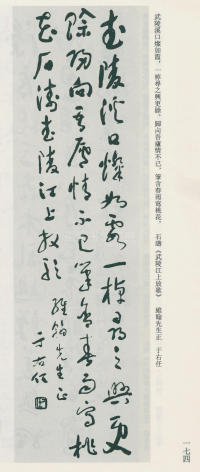 武陵溪口燦如霞，一棹尋之興更賒。歸向吾廬情不已，筆含春雨寫桃花。 石濤《武陵江上放歌》 維翰先生正 于右任
武陵溪口燦如霞一棹尋之興更
賒歸向吾廬情不已筆含春雨寫桃
花石濤武陵江上放歌
維翰先生正
于右任
一七四